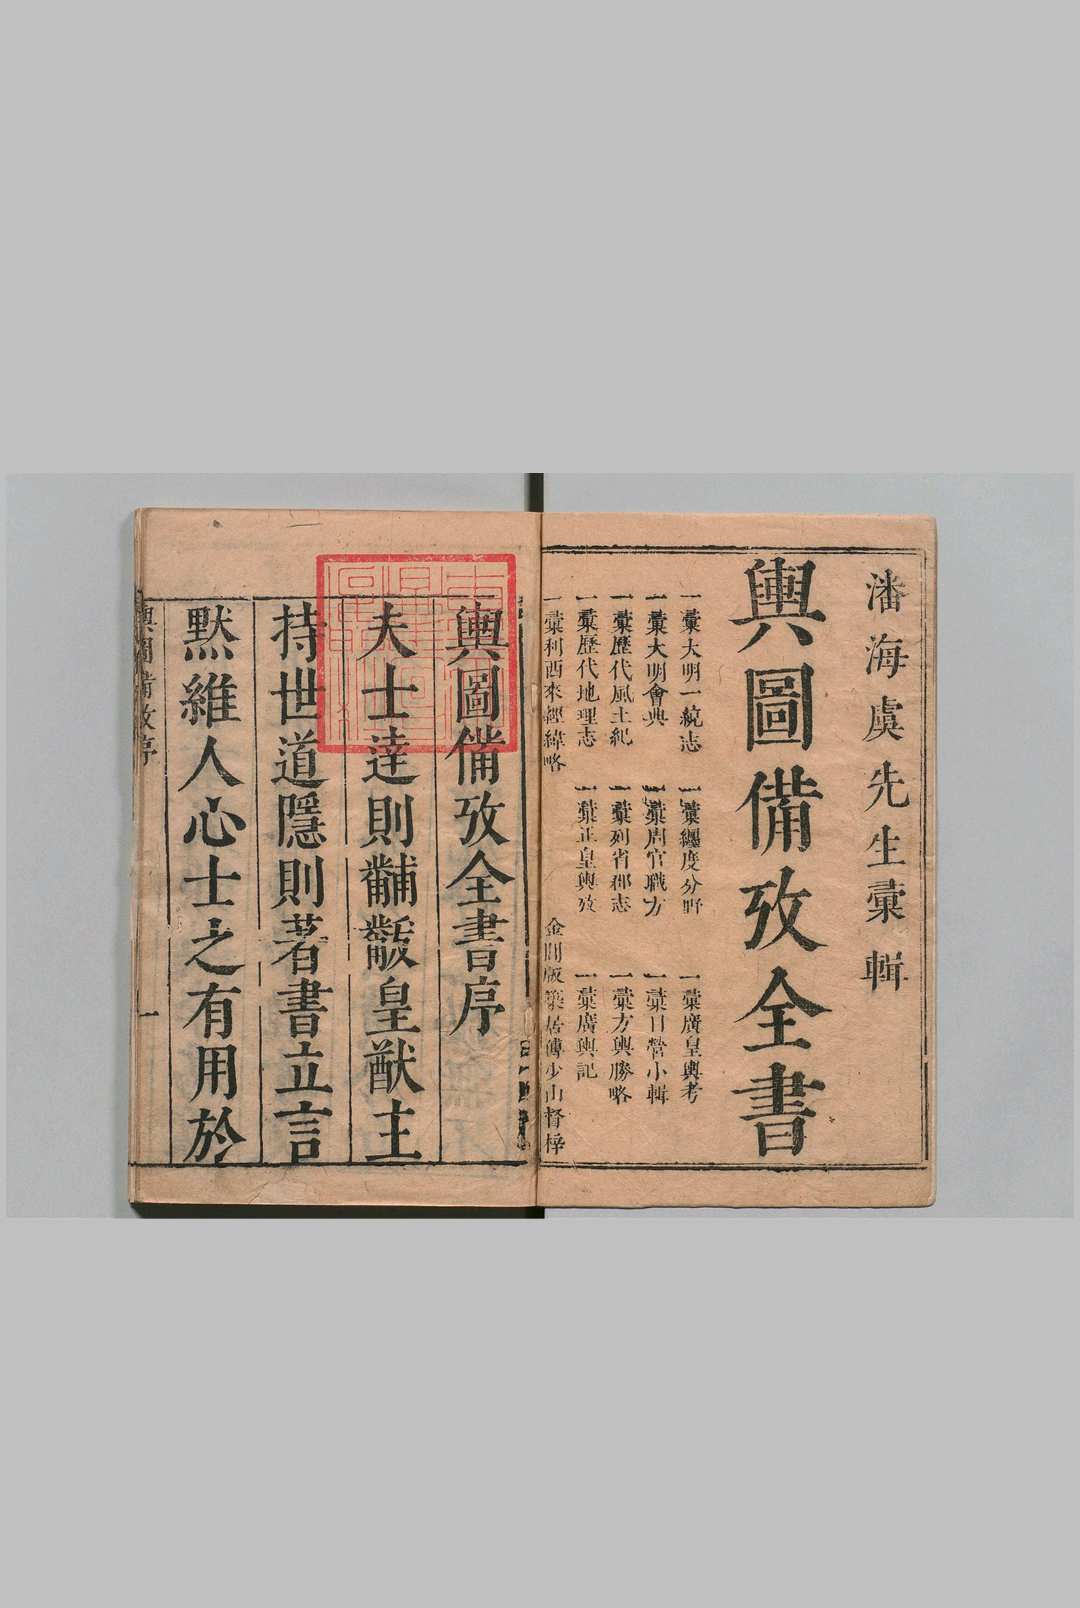 潘海虞先生彙輯
輿圖備攷全書
一彙大明一統志 一彙纏度分野 一彙廣皇輿考
一彙大明會典 一彙周官職方 一彙日營小輯
一彙歷代風土紀 一彙列省郡志 一彙方輿勝略
一彙歷代地理志 一彙正皇輿攷 一彙廣輿記
一彙利西來經緯略 金閶版築居傅少山督梓
輿圖備攷全書序
夫士達則黼黻皇猷主
持世道隱則著書立言
默維人心士之有用於
輿圖備攷序 一